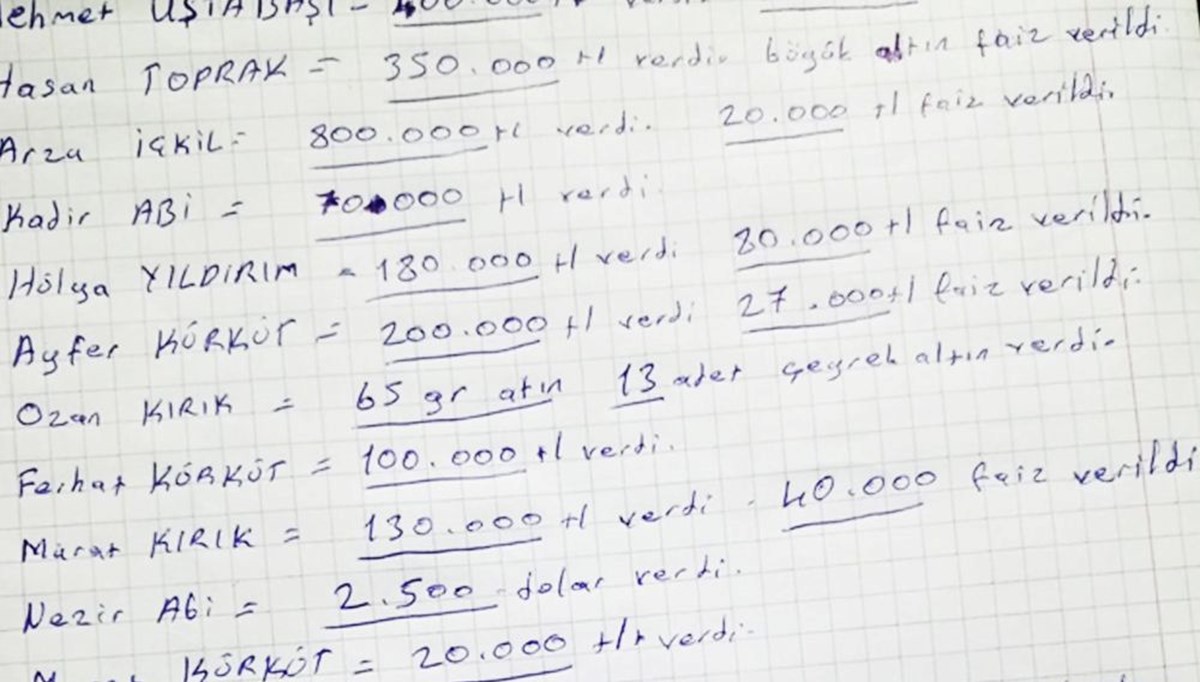 Mehmet USTABAŞI - 400.000
Hasan TOPRAK = 350.000 tl verdi. böyük altın faiz verildi.
Arzu içKiL = 800.000 tl verdi. 20.000 tl faiz verildi.
Kadir ABi = 70.000 tl verdi.
Hülya YILDIRIM = 180.000 tl verdi 30.000 tl faiz verildi.
Ayfer KÜRKÜT = 200.000 tl verdi 27.000 tl faiz verildi.
Ozan KIRIK = 65 gr atın 13 adet çeyrek altın verdi.
Ferhat KÜRKÜT = 100.000 tl verdi.
Murat KIRIK = 130.000 tl verdi. 40.000 faiz verildi
Nezir Abi = 2.500 dolar verdi.
KÜRKÜT = 20.000 verdi.